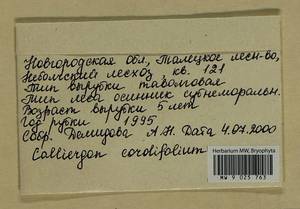 Новгородская обл., Талецкое лесн-во,
Небольский лесхоз кв. 121
Тип вырубки таволговая
Тип леса осинник субнеморальн.
Возраст вырубки 5 лет
Год рубки 1995
Собр. Демидова А.Н. Дата 4.07.2000
Calliergon cordifolium
Herbarium MW, Bryophyta
MW 9 025 763